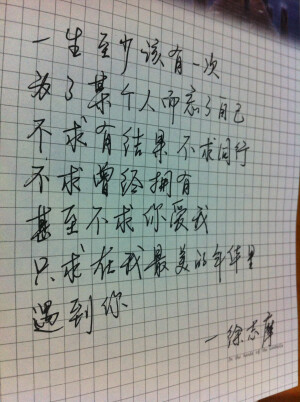 一生至少该有一次
为了某个人而忘了自己
不求有结果不求同行
不求曾经拥有
甚至不求你爱我
只求在我最美的年华里
遇到你
—徐志摩